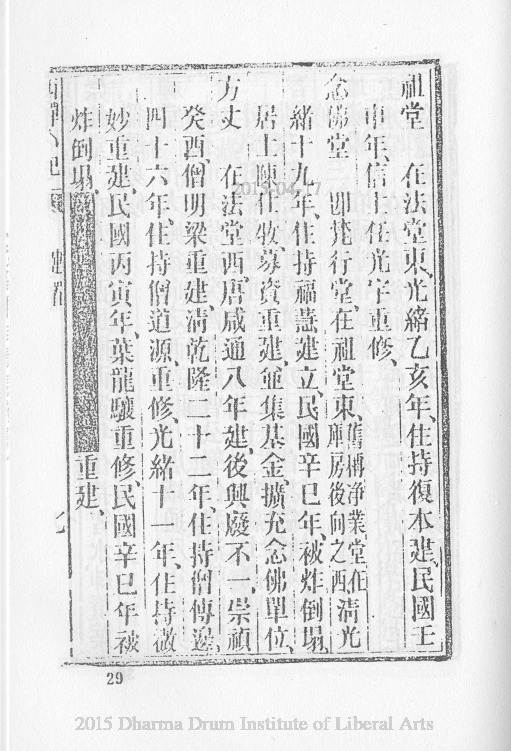 祖堂　在法堂東、光緒乙亥年、住持復本建、民國壬
申年、信士任光宇重修、
念佛堂　即梵行堂、在祖堂東、舊稱淨業堂在庫房後向之西、清光
緒十九年、住持福慧建立、民國辛巳年、被炸倒塌、
居士陳仕牧、募資重建、並集基金、擴充念佛單位、
方丈　在法堂西、唐咸通八年建、後興廢不一、崇禎
癸酉、僧明梁重建、清乾隆二十二年、住持僧傳邊、
四十六年、住持僧道源、重修、光緒十一年、住持微
妙重建、民國丙寅年葉龍驤重修、民國辛巳年被
炸倒塌、重建、
29
2015-04-17
2015 Dharma Drum Institute of Liberal Arts